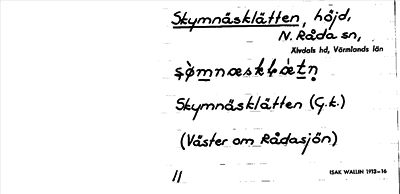 Skymnäsklätten, höjd,
N. Råda sn,
Älvdals hd, Värmlands län
Skymnäsklätten (G.k.)
(Väster om Rådasjön)
11
ISAK WALLIN 1913–16